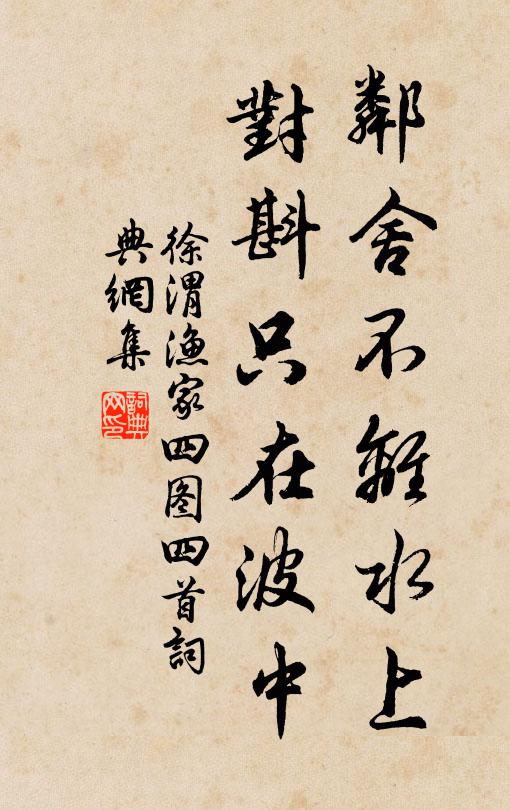 鄰舍不離水上
對斟只在波中
徐渭漁家四图四首詞
典網集
詞典
网印